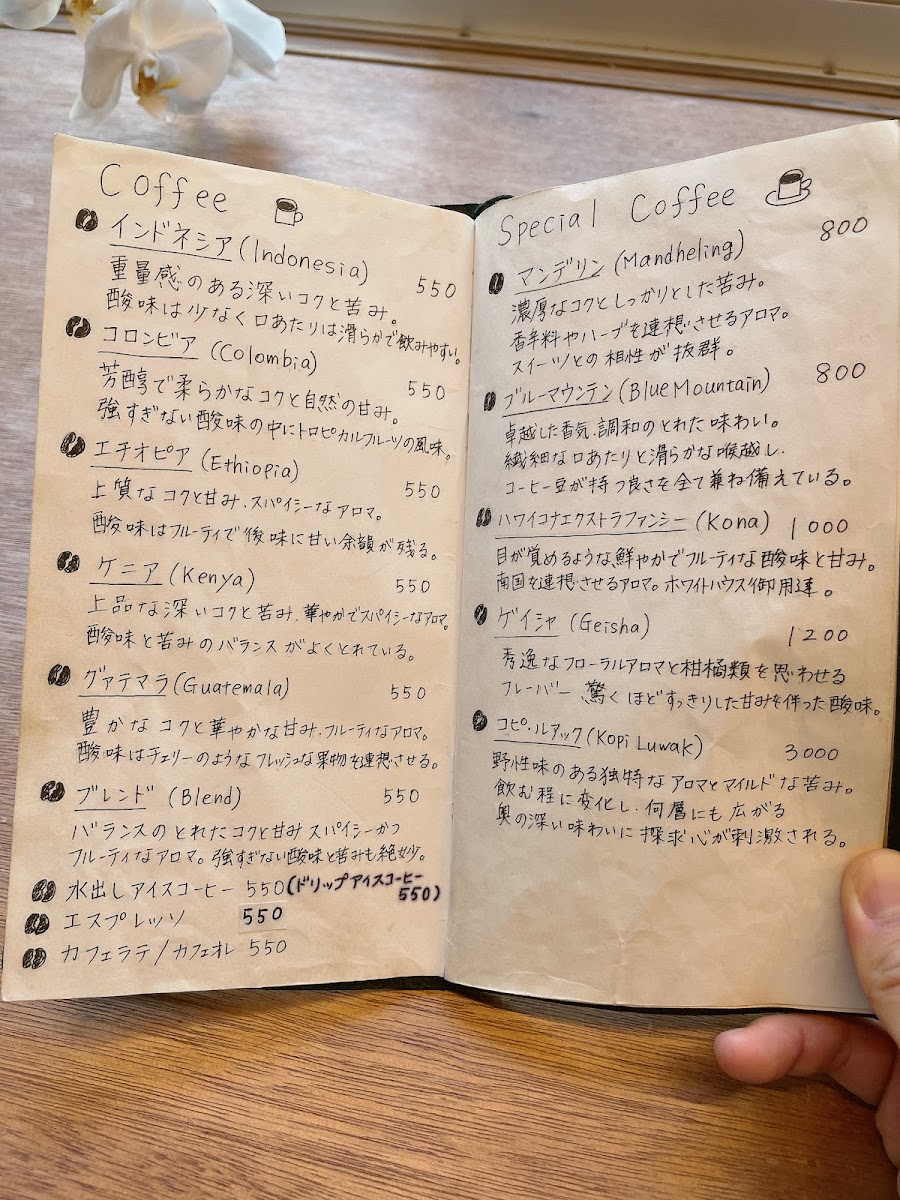 Coffee
インドネシア (Indonesia)
550
重量感のある深いコクと苦み。
酸味は少なく口あたりは滑らかで飲みやすい。
コロンビア (Colombia)
550
芳醇で柔らかなコクと自然の甘み。
強すぎない酸味の中にトロピカルフルーツの風味。
エチオピア (Ethiopia)
550
上質なコクと甘み、スパイシーなアロマ。
酸味はフルーティで後味に甘い余韻が残る。
ケニア (Kenya)
550
上品な深いコクと苦み、華やかでスパイシーなアロマ。
酸味と苦みのバランスがよくとれている。
グァテマラ (Guatemala)
550
豊かなコクと華やかな甘み、フルーティなアロマ。
酸味はチェリーのようなフレッシュな果物を連想させる。
ブレンド (Blend)
550
バランスのとれたコクと甘み スパイシーかつ
フルーティなアロマ。強すぎない酸味と苦みも絶妙。
水出しアイスコーヒー 550 (ドリップアイスコーヒー
550)
エスプレッソ 550
カフェラテ/カフェオレ 550
Special Coffee
マンデリン (Mandheling)
800
濃厚なコクとしっかりとした苦み。
香辛料やハーブを連想させるアロマ。
スイーツとの相性が抜群。
ブルーマウンテン (Blue Mountain)
800
卓越した香気、調和のとれた味わい。
繊細な口あたりと滑らかな喉越し、
コーヒー豆が持つ良さを全て兼ね備えている。
ハワイコナエクストラファンシー (Kona) 1000
目が覚めるような、鮮やかでフルーティな酸味と甘み。
南国を連想させるアロマ。ホワイトハウス御用達。
ゲイシャ (Geisha)
1200
秀逸なフローラルアロマと柑橘類を思わせる
フレーバー、驚くほどすっきりした甘みを伴った酸味。
コピ・ルアック (Kopi Luwak)
3000
野性味のある独特なアロマとマイルドな苦み。
飲む程に変化し、何層にも広がる
奥の深い味わいに探求心が刺激される。